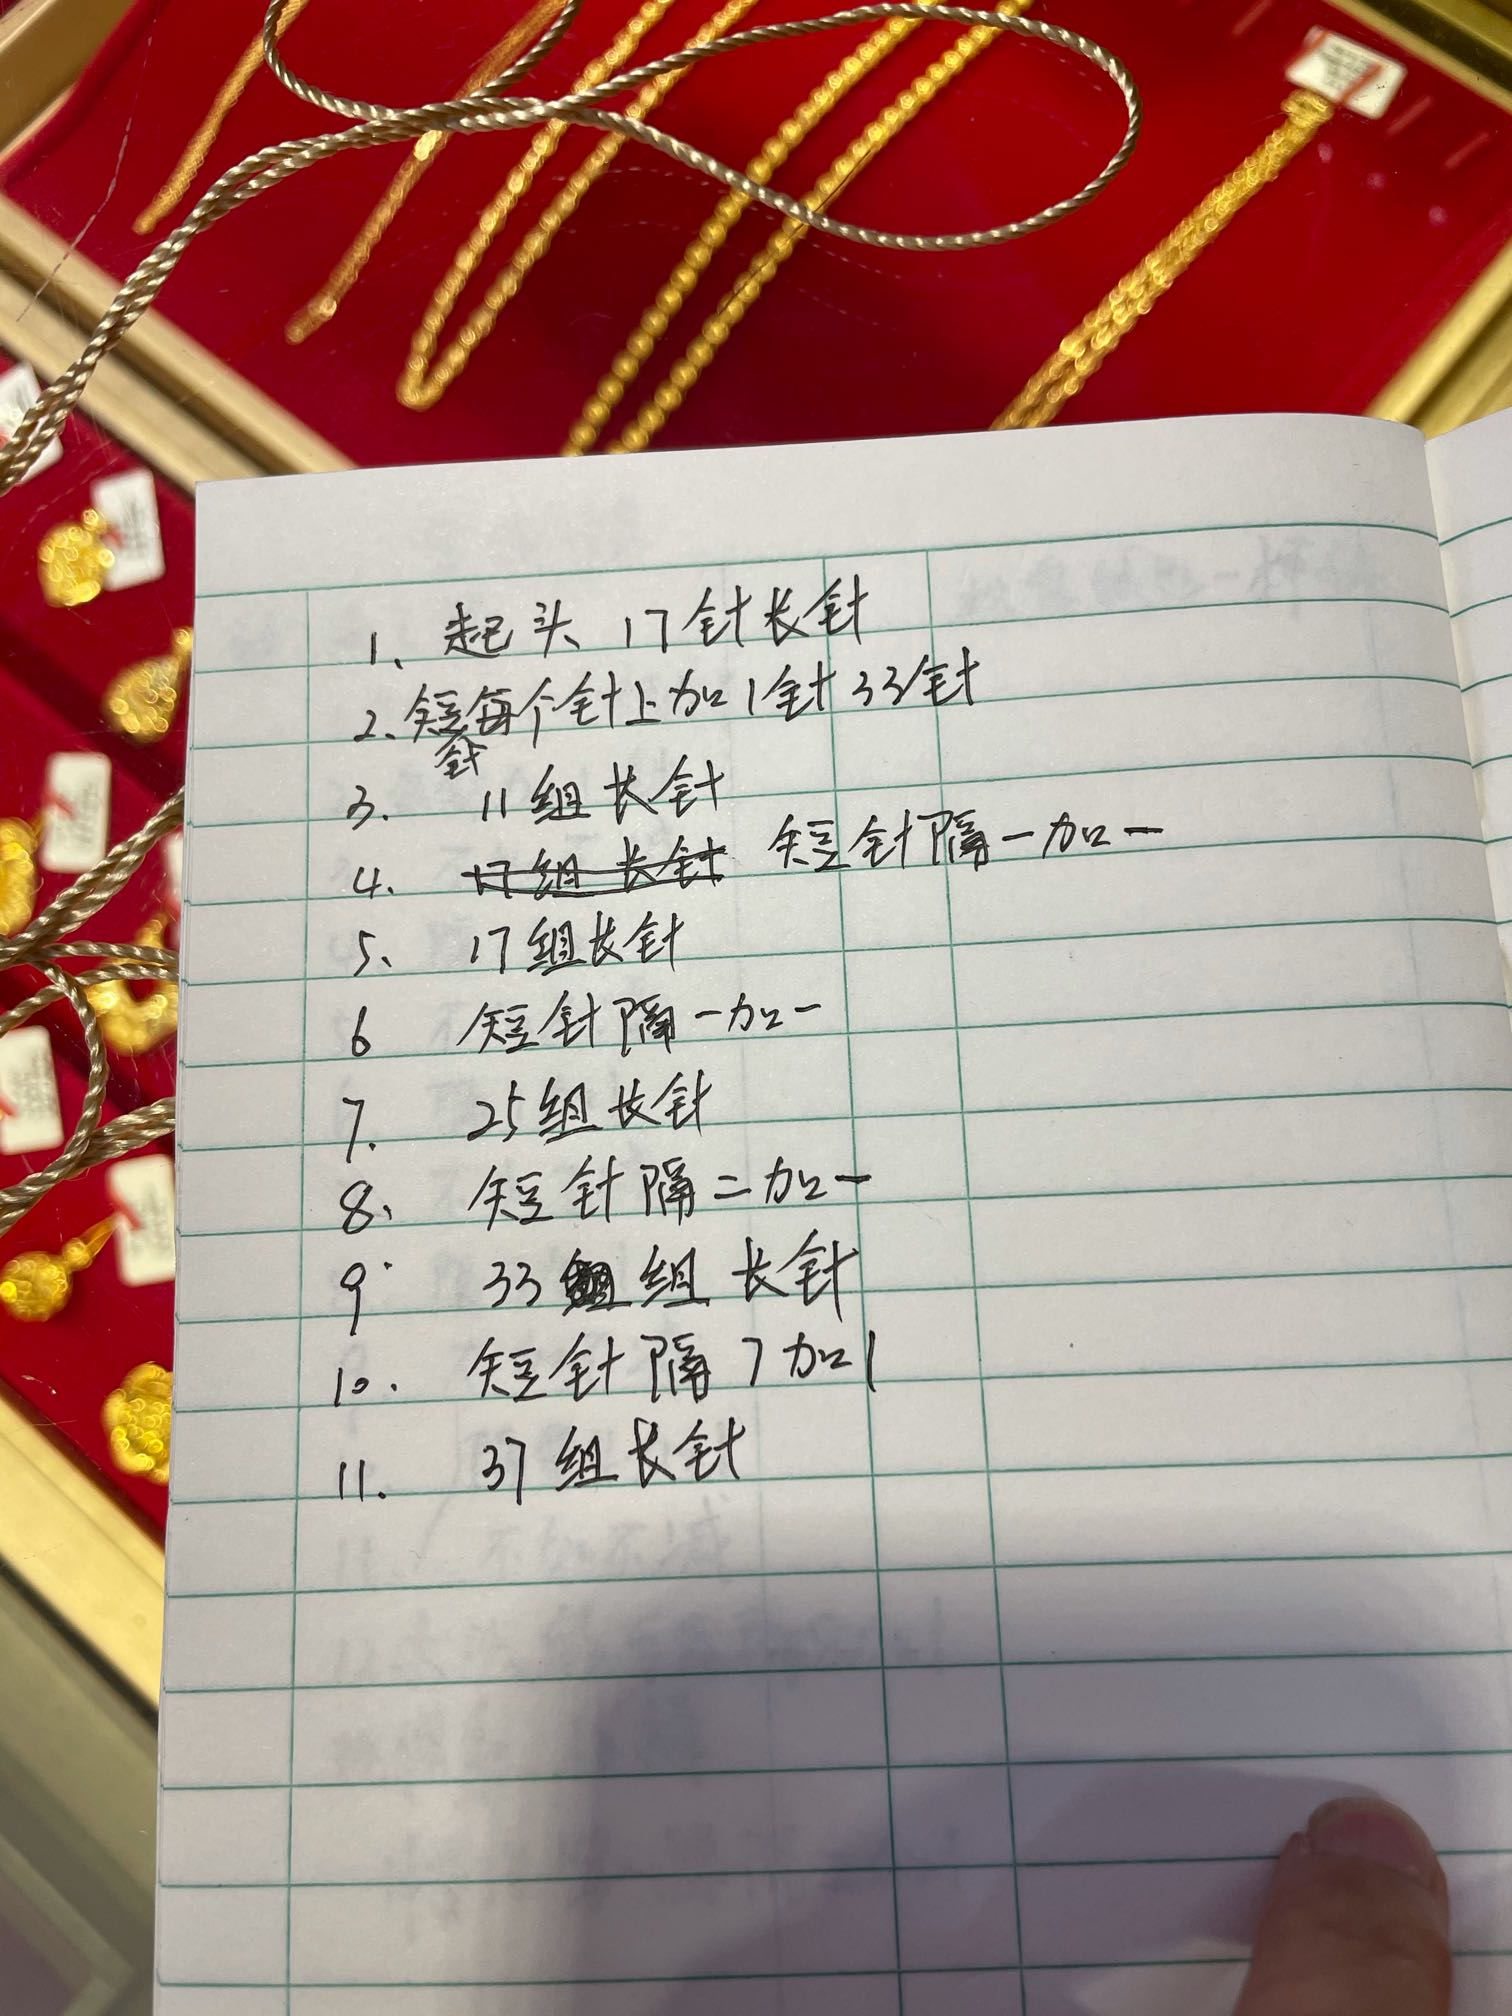 1、起头 17针长针
2、短针每个针上加1针33针
3. 11组长针
4. 17组长针 短针隔一加一
5、17组长针
6 短针隔一加一
7. 25组长针
8、短针隔二加一
9. 33组长针
10. 短针隔7加1
11. 37组长针